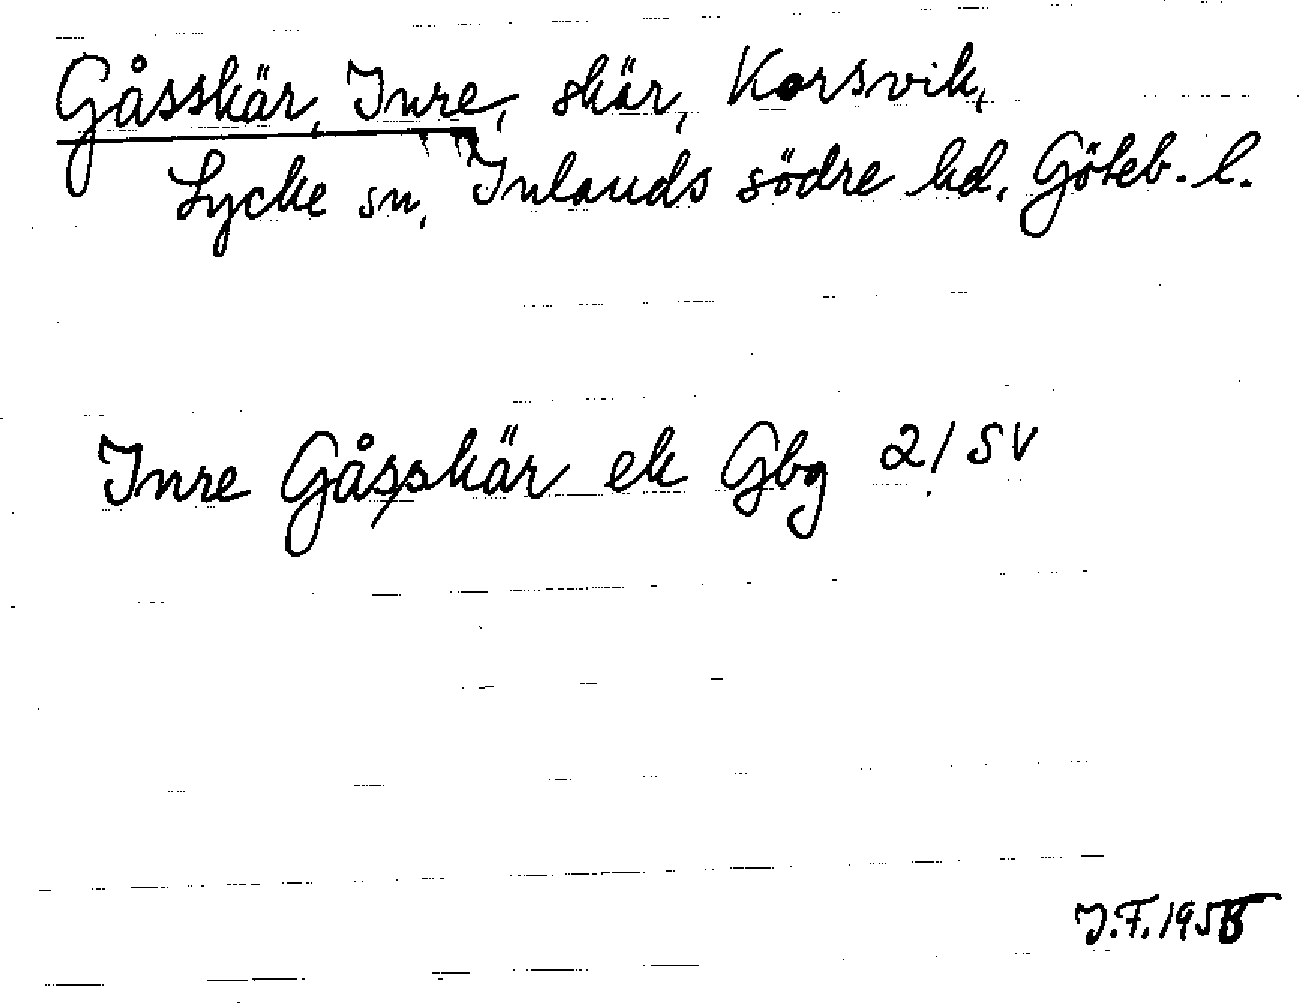 Gåsskär, Inre, skär, Korsvik,
Lycke sn, Inlands södre hd. Göteb. l.
Inre Gåsskär ek Gbg 2/SV
J.F. 1958